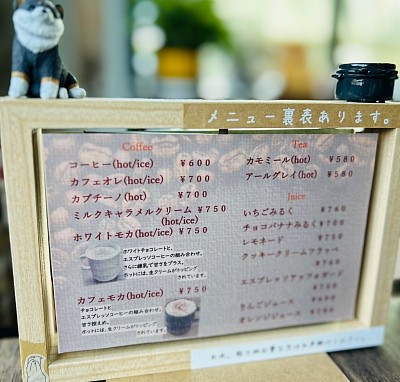 メニュー裏表あります。
Coffee
コーヒー(hot/ice) ￥600
カフェオレ(hot/ice) ￥700
カプチーノ(hot) ￥700
ミルクキャラメルクリーム ￥750
(hot/ice)
ホワイトモカ(hot/ice) ￥750
ホワイトチョコレートと、
エスプレッソコーヒーの組み合わせ。
さらに練乳で甘さをプラス。
ホットには、生クリームがトッピング
されています。
カフェモカ(hot/ice) ￥750
チョコレートと、
エスプレッソコーヒーの組み合わせ。
甘さ控えめ。
ホットには、生クリームがトッピング
されています。
Tea
カモミール(hot) ￥580
アールグレイ(hot) ￥580
Juice
いちごみるく ￥760
チョコバナナみるく ￥700
レモネード ￥750
クッキークリームフラッペ
エスプレッソ
りんごジュース
オレンジジュース